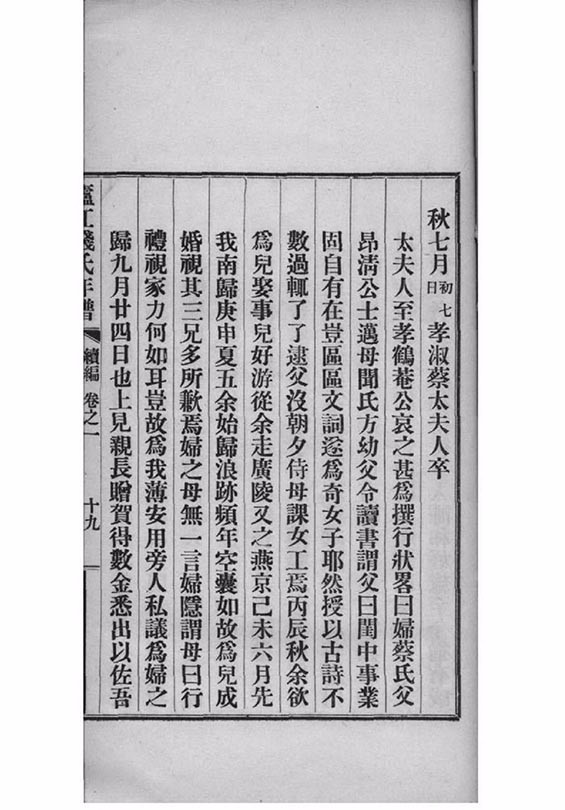 秋七月初七日孝淑蔡太夫人卒
太夫人至孝鶴菴公哀之甚爲撰行狀畧曰婦蔡氏父
昂清公士邁母聞氏方幼父令讀書謂父曰閨中事業
固自有在豈區區文詞遂爲奇女子耶然授以古詩不
數過輒了了逮父沒朝夕侍母課女工焉丙辰秋余欲
爲兒娶事兒好游從余走廣陵又之燕京己未六月先
我南歸庚申夏五余始歸浪跡頻年空囊如故爲兒成
婚視其三兄多所歉焉婦之母無一言婦隱謂母曰行
禮視家力何如耳豈故爲我薄安用旁人私議爲婦之
歸九月廿四日也上見親長贈賀得數金悉出以佐吾
廬江錢氏年譜 續編 卷之一 十九